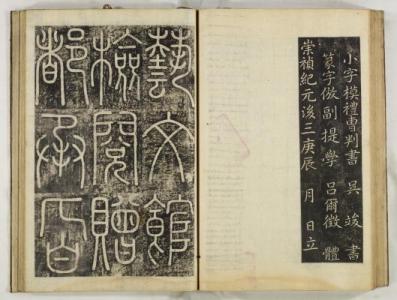 小字模禮曹判書 吳 竣 書
篆字倣副提學 呂爾徵 體
崇禎紀元後三庚辰 月 日立
藝文館
檢閱贈
都承旨